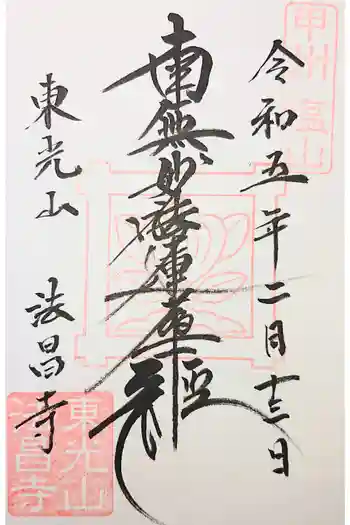 甲州 昌山
令和五年二月十三日
南無妙法蓮華経
東光山 法昌寺
東光山
法昌寺